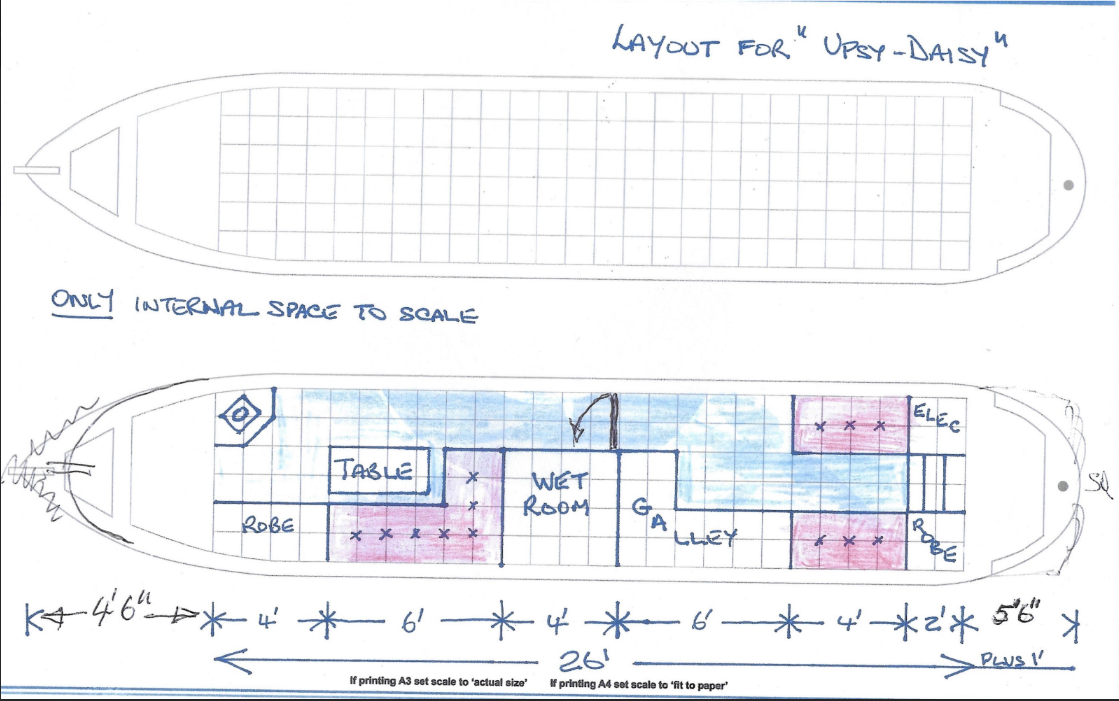 LAYOUT FOR "UPSY-DAISY"
ONLY INTERNAL SPACE TO SCALE
ELEC
TABLE
WET
ROOM
ROBE
GALLEY
ROBE
4'6" 4' 6' 4' 6' 4' 2' 5'6"
26' PLUS 1'
If printing A3 set scale to 'actual size' If printing A4 set scale to 'fit to paper'